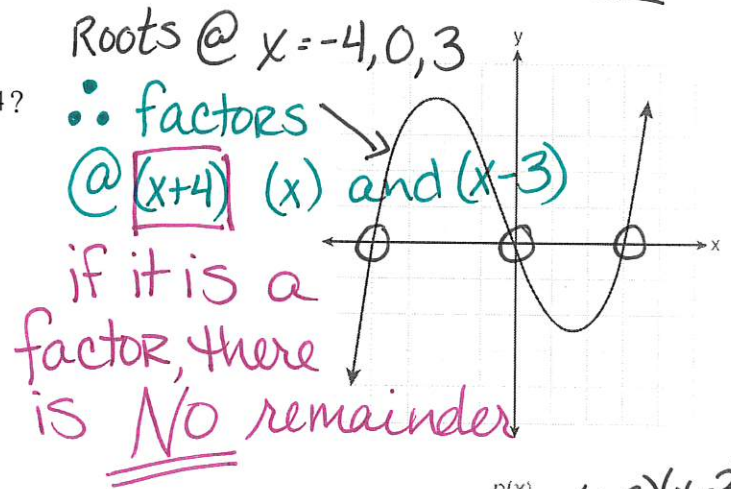 Roots @ x = -4, 0, 3
4?
∴ factors
@ (x+4) (x) and (x-3)
if it is a
factor, there
is NO remainder
y
x
p(x)